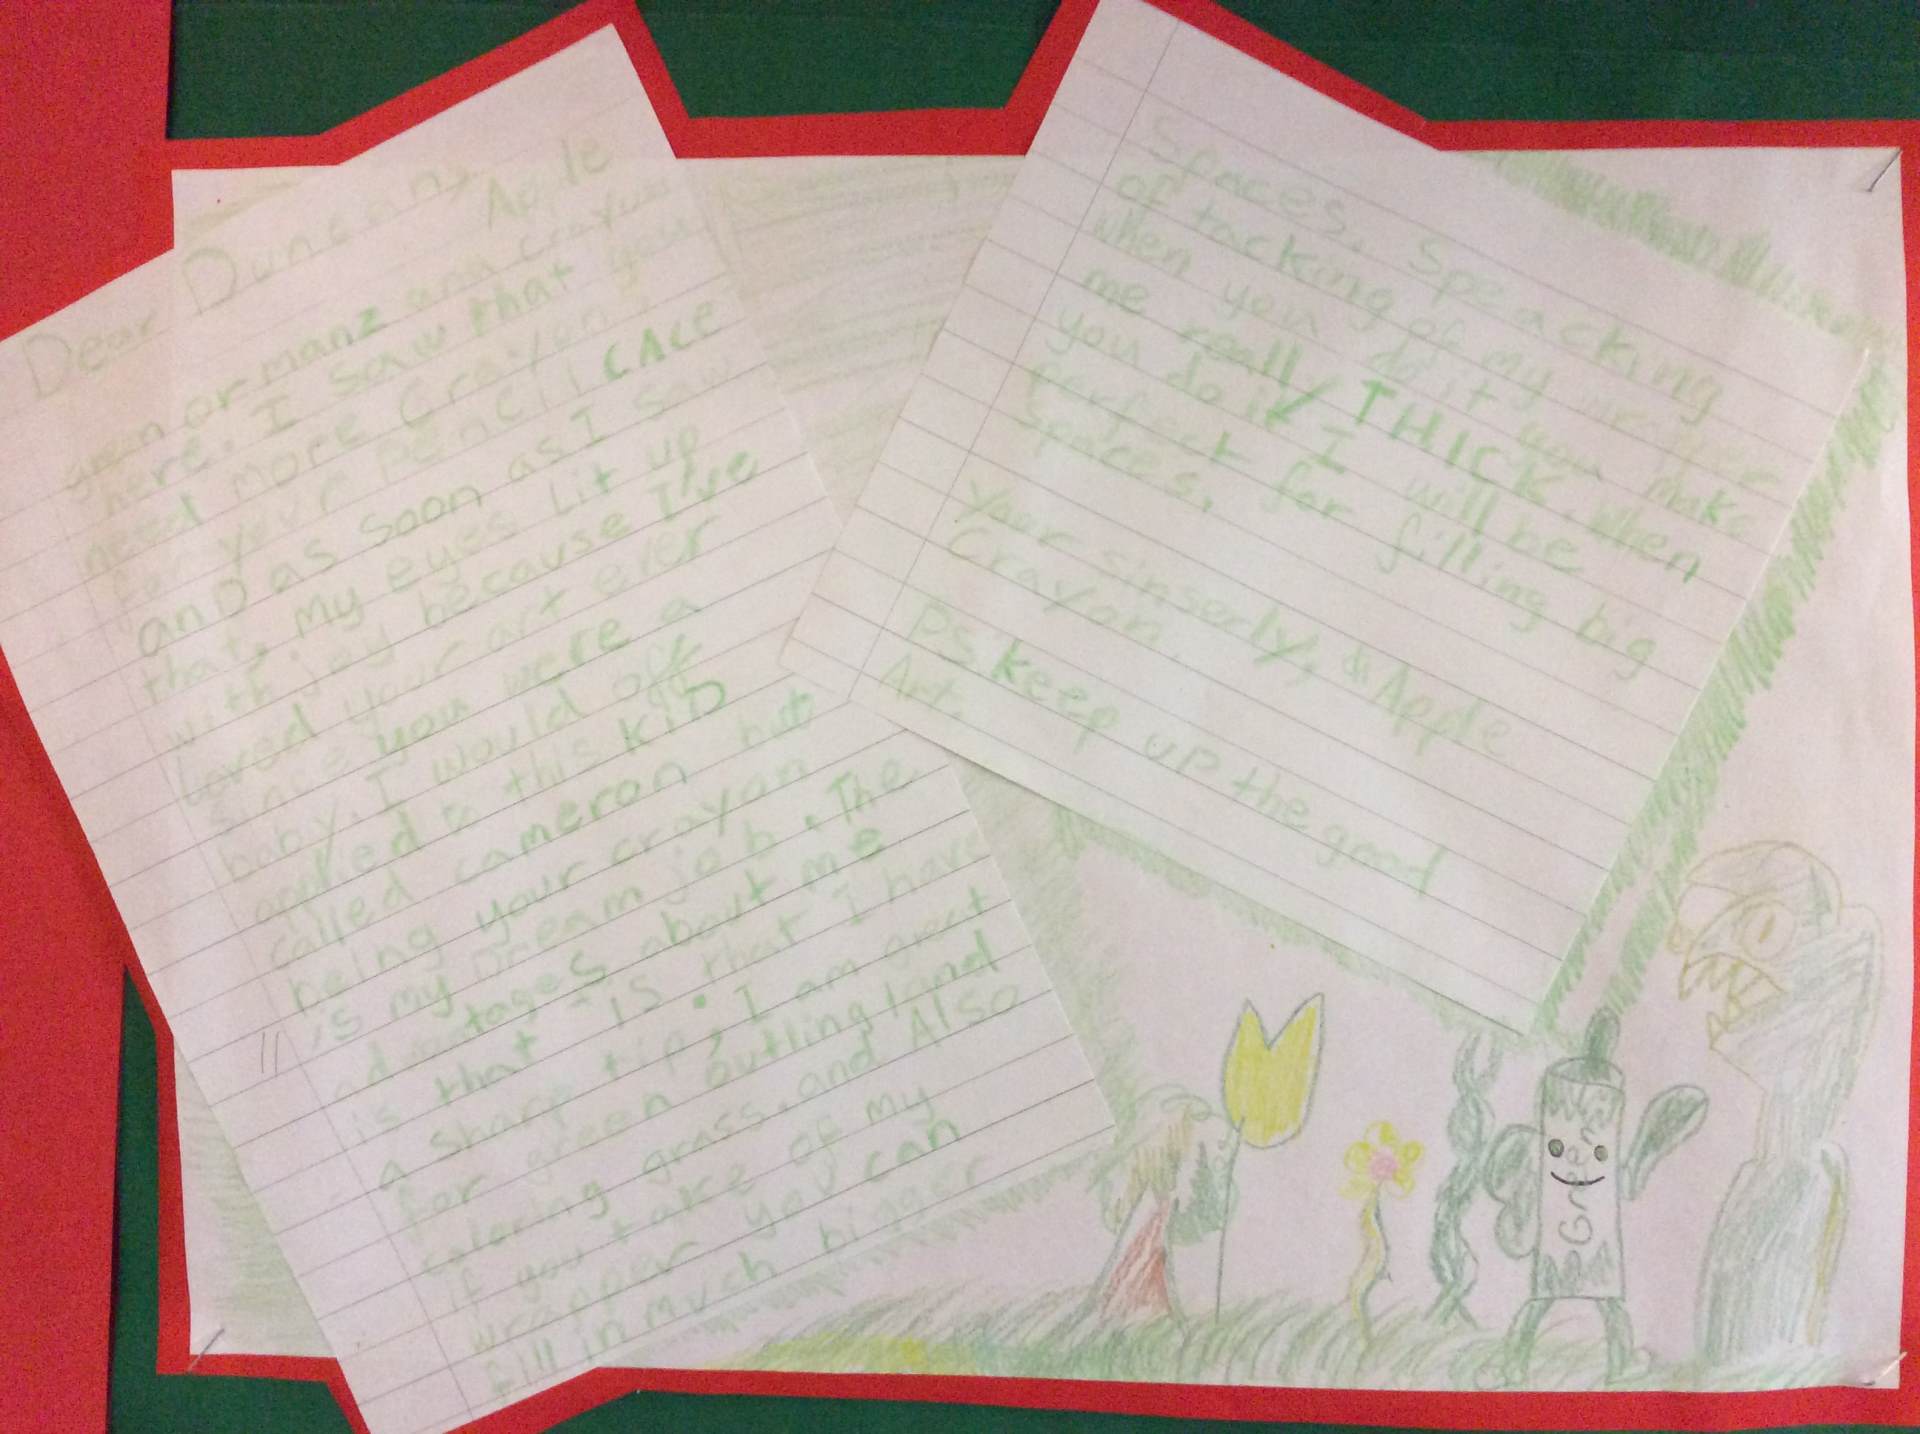 Dear Duncan,
Apple
green ormanz and crayon
here. I saw that you
need more Crayons
for your pencil CACE
anD as soon as I saw
that, my eyes Lit up
with joy because I've
loved your art ever
since you were a
baby. I would off
applied to this KiD
called cameron but
being your crayon
is my Dream job. The
advantages about me
is that is that I have
a sharp tip, I am great
for green outling land
coloring grass, and Also
if you take of my
wrapper you can
fill in much bigger
Spaces. Speacking
of tacking of my wrapper
when you do it you make
me really THICK. When
you do it I will be
perfect for filling big
spaces.
Your sinserly, Apple
Crayon
PS keep up the good
Art.
Green